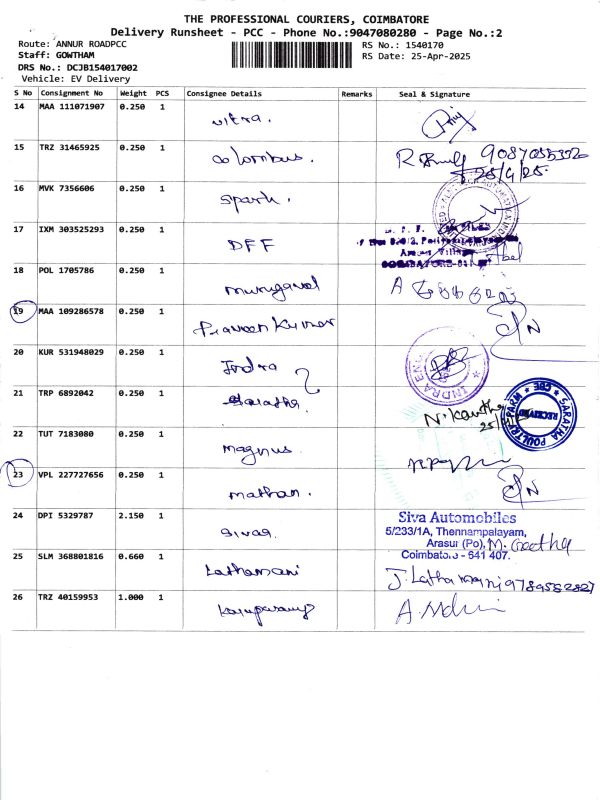 THE PROFESSIONAL COURIERS, COIMBATORE
Delivery Runsheet - PCC - Phone No.:9047080280 - Page No.:2
Route: ANNUR ROADPCC
Staff: GOWTHAM
DRS No.: DCJB154017002
Vehicle: EV Delivery
RS No.: 1540170
RS Date: 25-Apr-2025
S No Consignment No Weight PCS Consignee Details Remarks Seal & Signature
14 MAA 111071907 0.250 1
vitra.
15 TRZ 31465925 0.250 1
Colombus. R 9087055320
25/4/25.
16 MVK 7356606 0.250 1
Spark.
17 IXM 303525293 0.250 1
DFF
COIMBATORE
18 POL 1705786 0.250 1
murugavel A
19 MAA 109286578 0.250 1
Praveen Kumar
20 KUR 531948029 0.250 1
Indra INDRA
21 TRP 6892042 0.250 1
Saratha. N. Kavitha
25/ SARATHA POULTRY FARM * CBE * RECEIVED
22 TUT 7183080 0.250 1
magnus.
23 VPL 227727656 0.250 1
mathan.
24 DPI 5329787 2.150 1
Sivas Siva Automobiles
5/233/1A, Thennampalayam,
Arasur (Po), M. Geetha
Coimbatore - 641 407.
25 SLM 368801816 0.660 1
Lathamani J. Lathamani 9789552827
26 TRZ 40159953 1.000 1